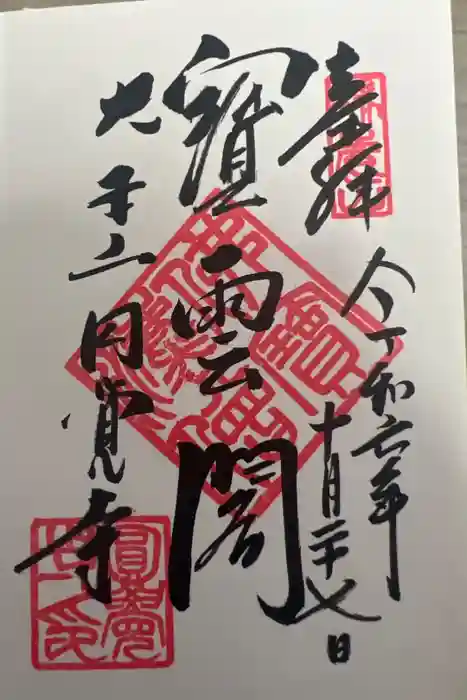 奉拝
令和六年
十月二十七日
寶雲閣
大本山円覚寺